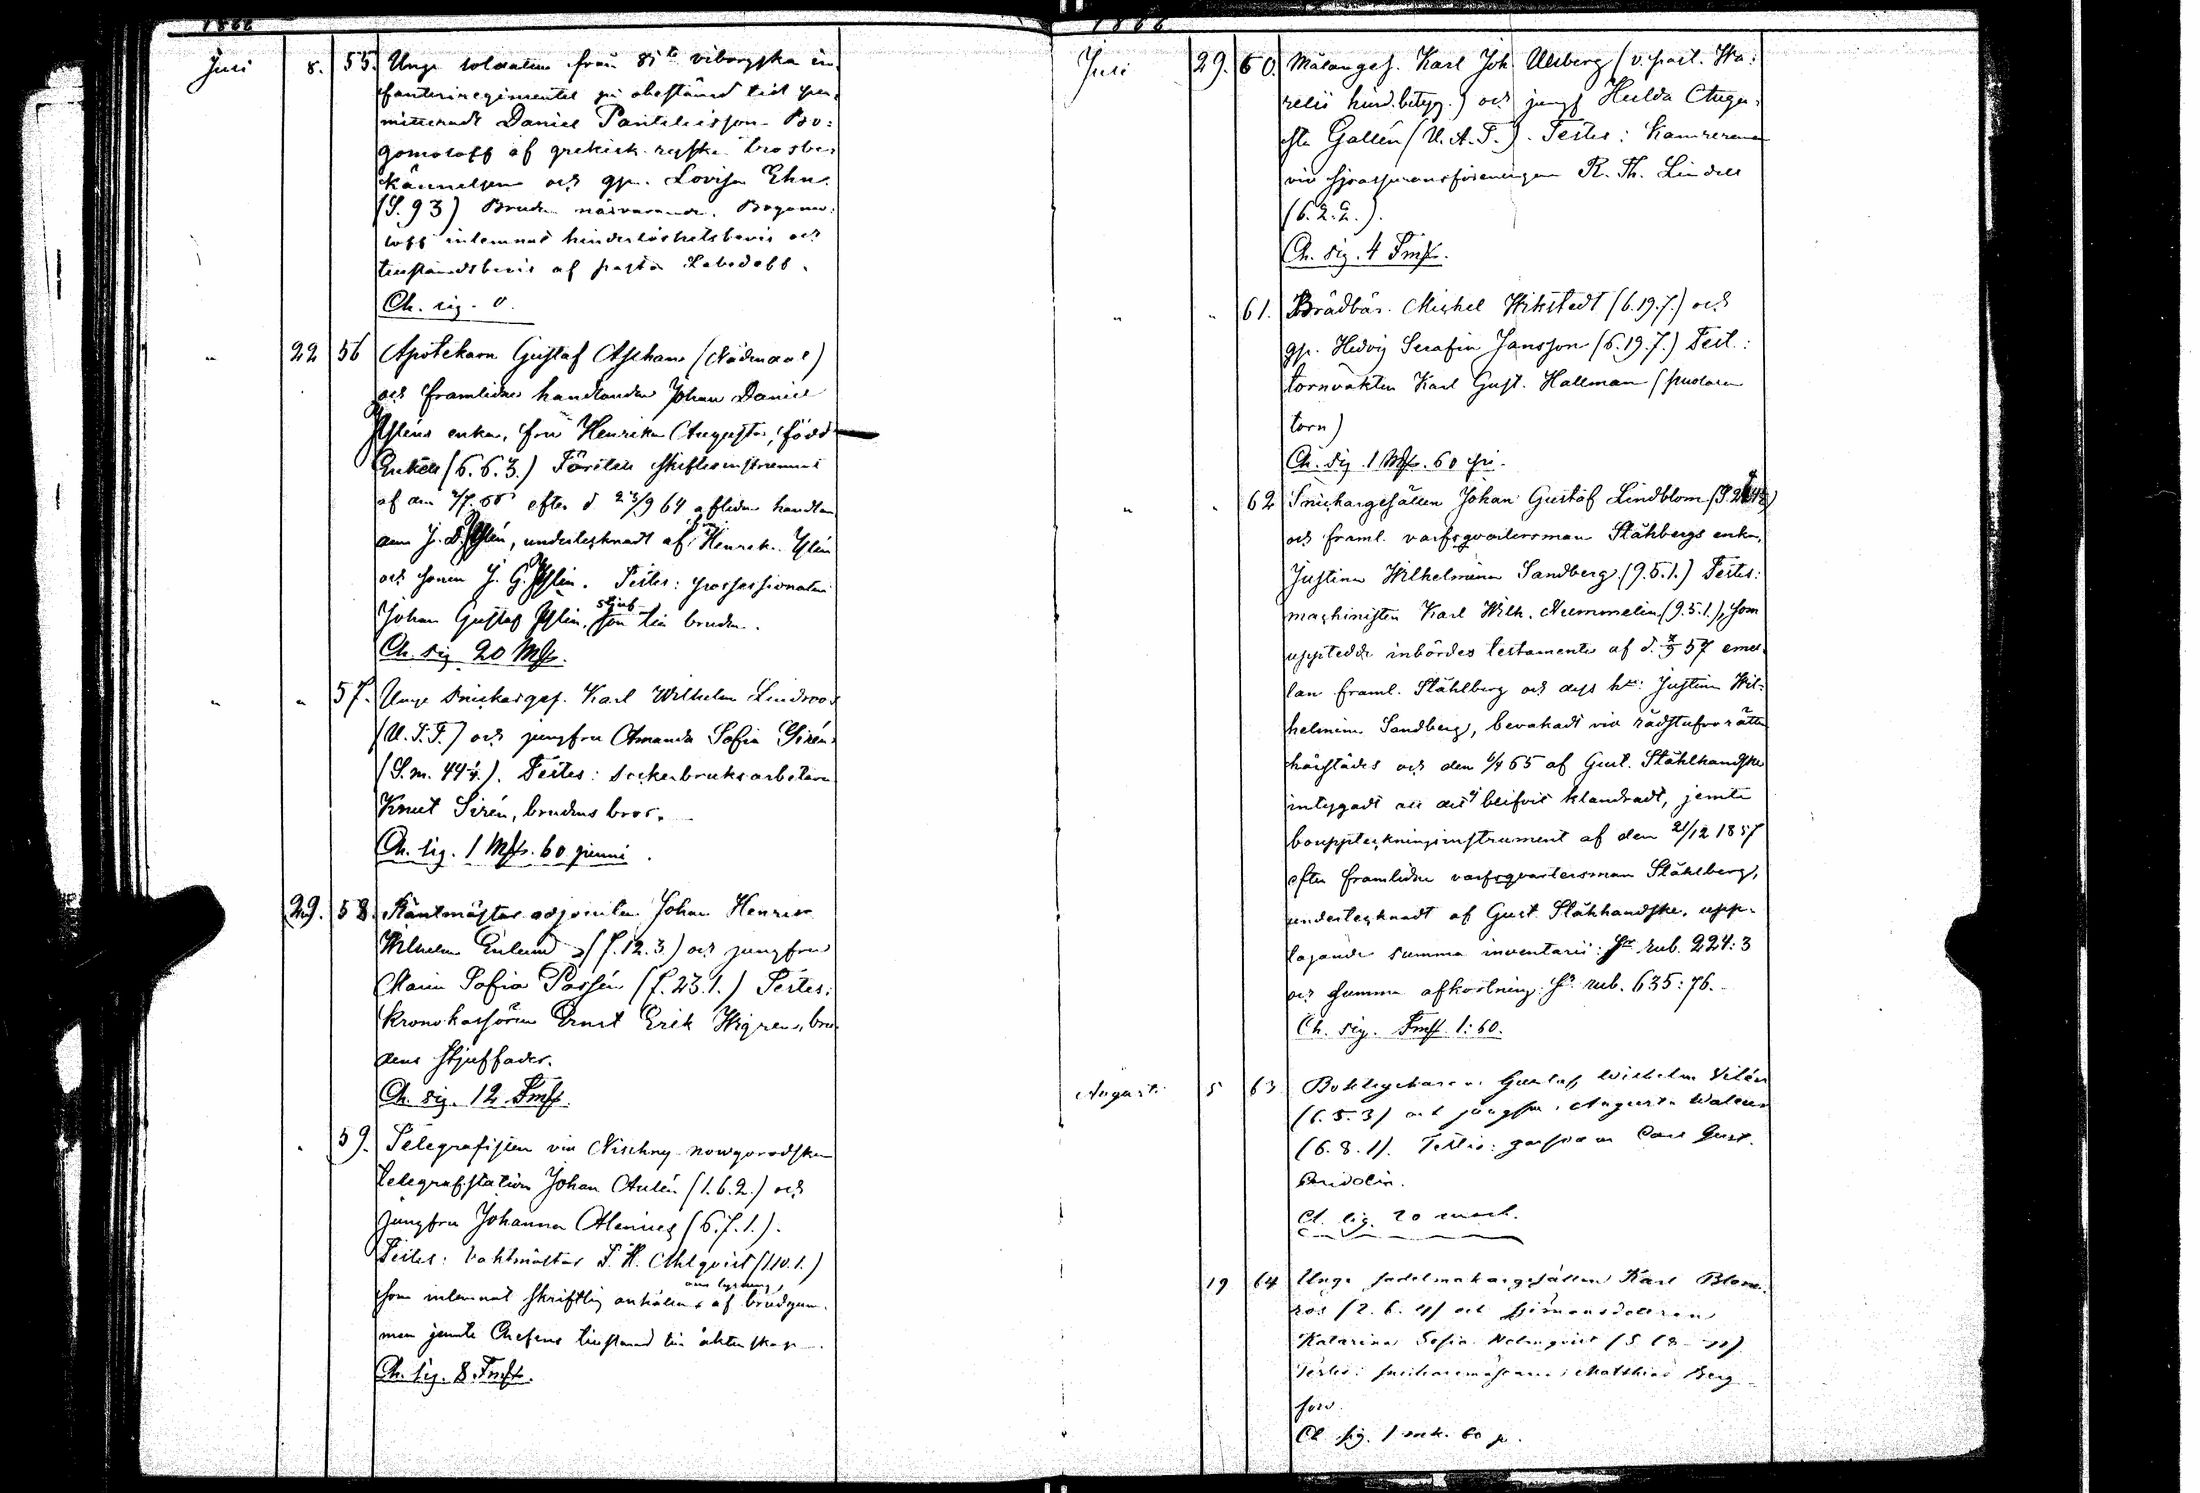 1866
Juli 8. 55. Unge soldaten från 85te viborgska in-
fanteriregimentet på obestämd tid per-
mitterade Daniel Panteleisson Bo-
gomoloff af grekisk-ryska trosbe-
kännelsen och gp. Lovisa Ehn
(S. 93) Bruden närvarande. Bogomo-
loff inlemnat hinderlöshetsbevis och
tillståndsbevis af pastor Lebedeff.
Ch. sig. 0.
" 22 56 Apotekaren Gustaf Aschan (Nådendal)
och framlidne handlanden Johan Daniel
Ysléns enka, fru Henrika Augusta, född
Enkell (6.6.3.) Företer skiftesinstrument
af den efter d. 23/9 64 aflidne handlan-
den J. D. Yslén, undertecknadt af fru Henrik. Yslén
och sonen J. G. Yslén. Testes: possessionaten
Johan Gustaf Yslén, stjuf-son till bruden.
Ch. sig. 20 Mk.
" " 57. Unge snickarges. Karl Wilhelm Lindroos
(U.T.T.) och jungfru Amanda Sofia Sirén
(S.m. 44¼). Testes: sockerbruksarbetaren
Knut Sirén, brudens bror.
Ch. sig. 1 Mk. 60 penni.
29. 58. Räntmästar-adjointen Johan Henrik
Wilhelm Enlund (f. 12.3) och jungfru
Maria Sofia Possén (f. 23.1.) Testes:
kronokassören Ernst Erik Wigren, bru-
dens stjuffader.
Ch. sig. 12 Fmk.
" 59. Telegrafisten vid Nischny-nowgorodska
telegrafstation Johan Aulén (1.6.2.) och
jungfru Johanna Alenius (6.7.1.).
Testes: vaktmästar F. H. Ahlqvist (1.10.1.)
som inlemnat skriftlig anhållan om lysning, af brudgum-
men jemte Chefens tillstånd till äktenskap.
Ch. sig. 8 Fmk.
1866
Juli 29. 60. Målarges. Karl Joh. Ulsberg (v. past. Ka-
relii hind. betyg.) och jungf. Hulda Augu-
sta Gallén (U.A.T.). Testes: Kamreraren
vid sjöassuransföreningen R. Th. Lindell
(6.2.2.).
Ch. sig. 4 Fmk.
" " 61. Brädbär. Michel Wikstedt (6.19.7.) och
gp. Hedvig Serafia Jansson (6.19.7.) Test.:
tornväkten Karl Gust. Hallman (
torn)
Ch. sig. 1 Mk. 60 pi.
" " 62 Snickargesällen Johan Gustaf Lindblom
och framl. varfsqvartersman Ståhlbergs enka,
Justina Wilhelmina Sandberg (9.5.1.) Testes:
machinisten Karl Wilh. Nummelin (9.5.1.), som
upptedde inbördes testamente af d. 57 emel-
lan framl. Ståhlberg och dess h: Justina Wil-
helmina Sandberg, bevakadt vid rådstufvurätten
härstädes och den 65 af Gust. Stålhandske
intygadt att det ej blifvit klandradt, jemte
bouppteckningsinstrument af den 21/12 1857
efter framlidne varfsqvartersman Ståhlberg,
undertecknadt af Gust. Stålhandske, upp-
tagande summa inventarii: Sr rub. 224:3
och summa afkortning: Sr rub. 635:76.
Ch. sig. Fmk 1:60.
Augusti 5 63 Boktryckaren Gustaf Wilhelm Vilén
(6.5.3) och jungfru Augusta Walein
(6.8.1). Testis: Carl Gust.
Fridolin.
Ch. sig. 20 mark.
19 64 Unge sadelmakargesällen Karl Blom-
ros (2.6.4) och Simonsdottren
Katarina Sofia Holmqvist
Testis: snickaremästaren Matthias Berg-
fors.
Ch. sig. 1 mk. 60 p.